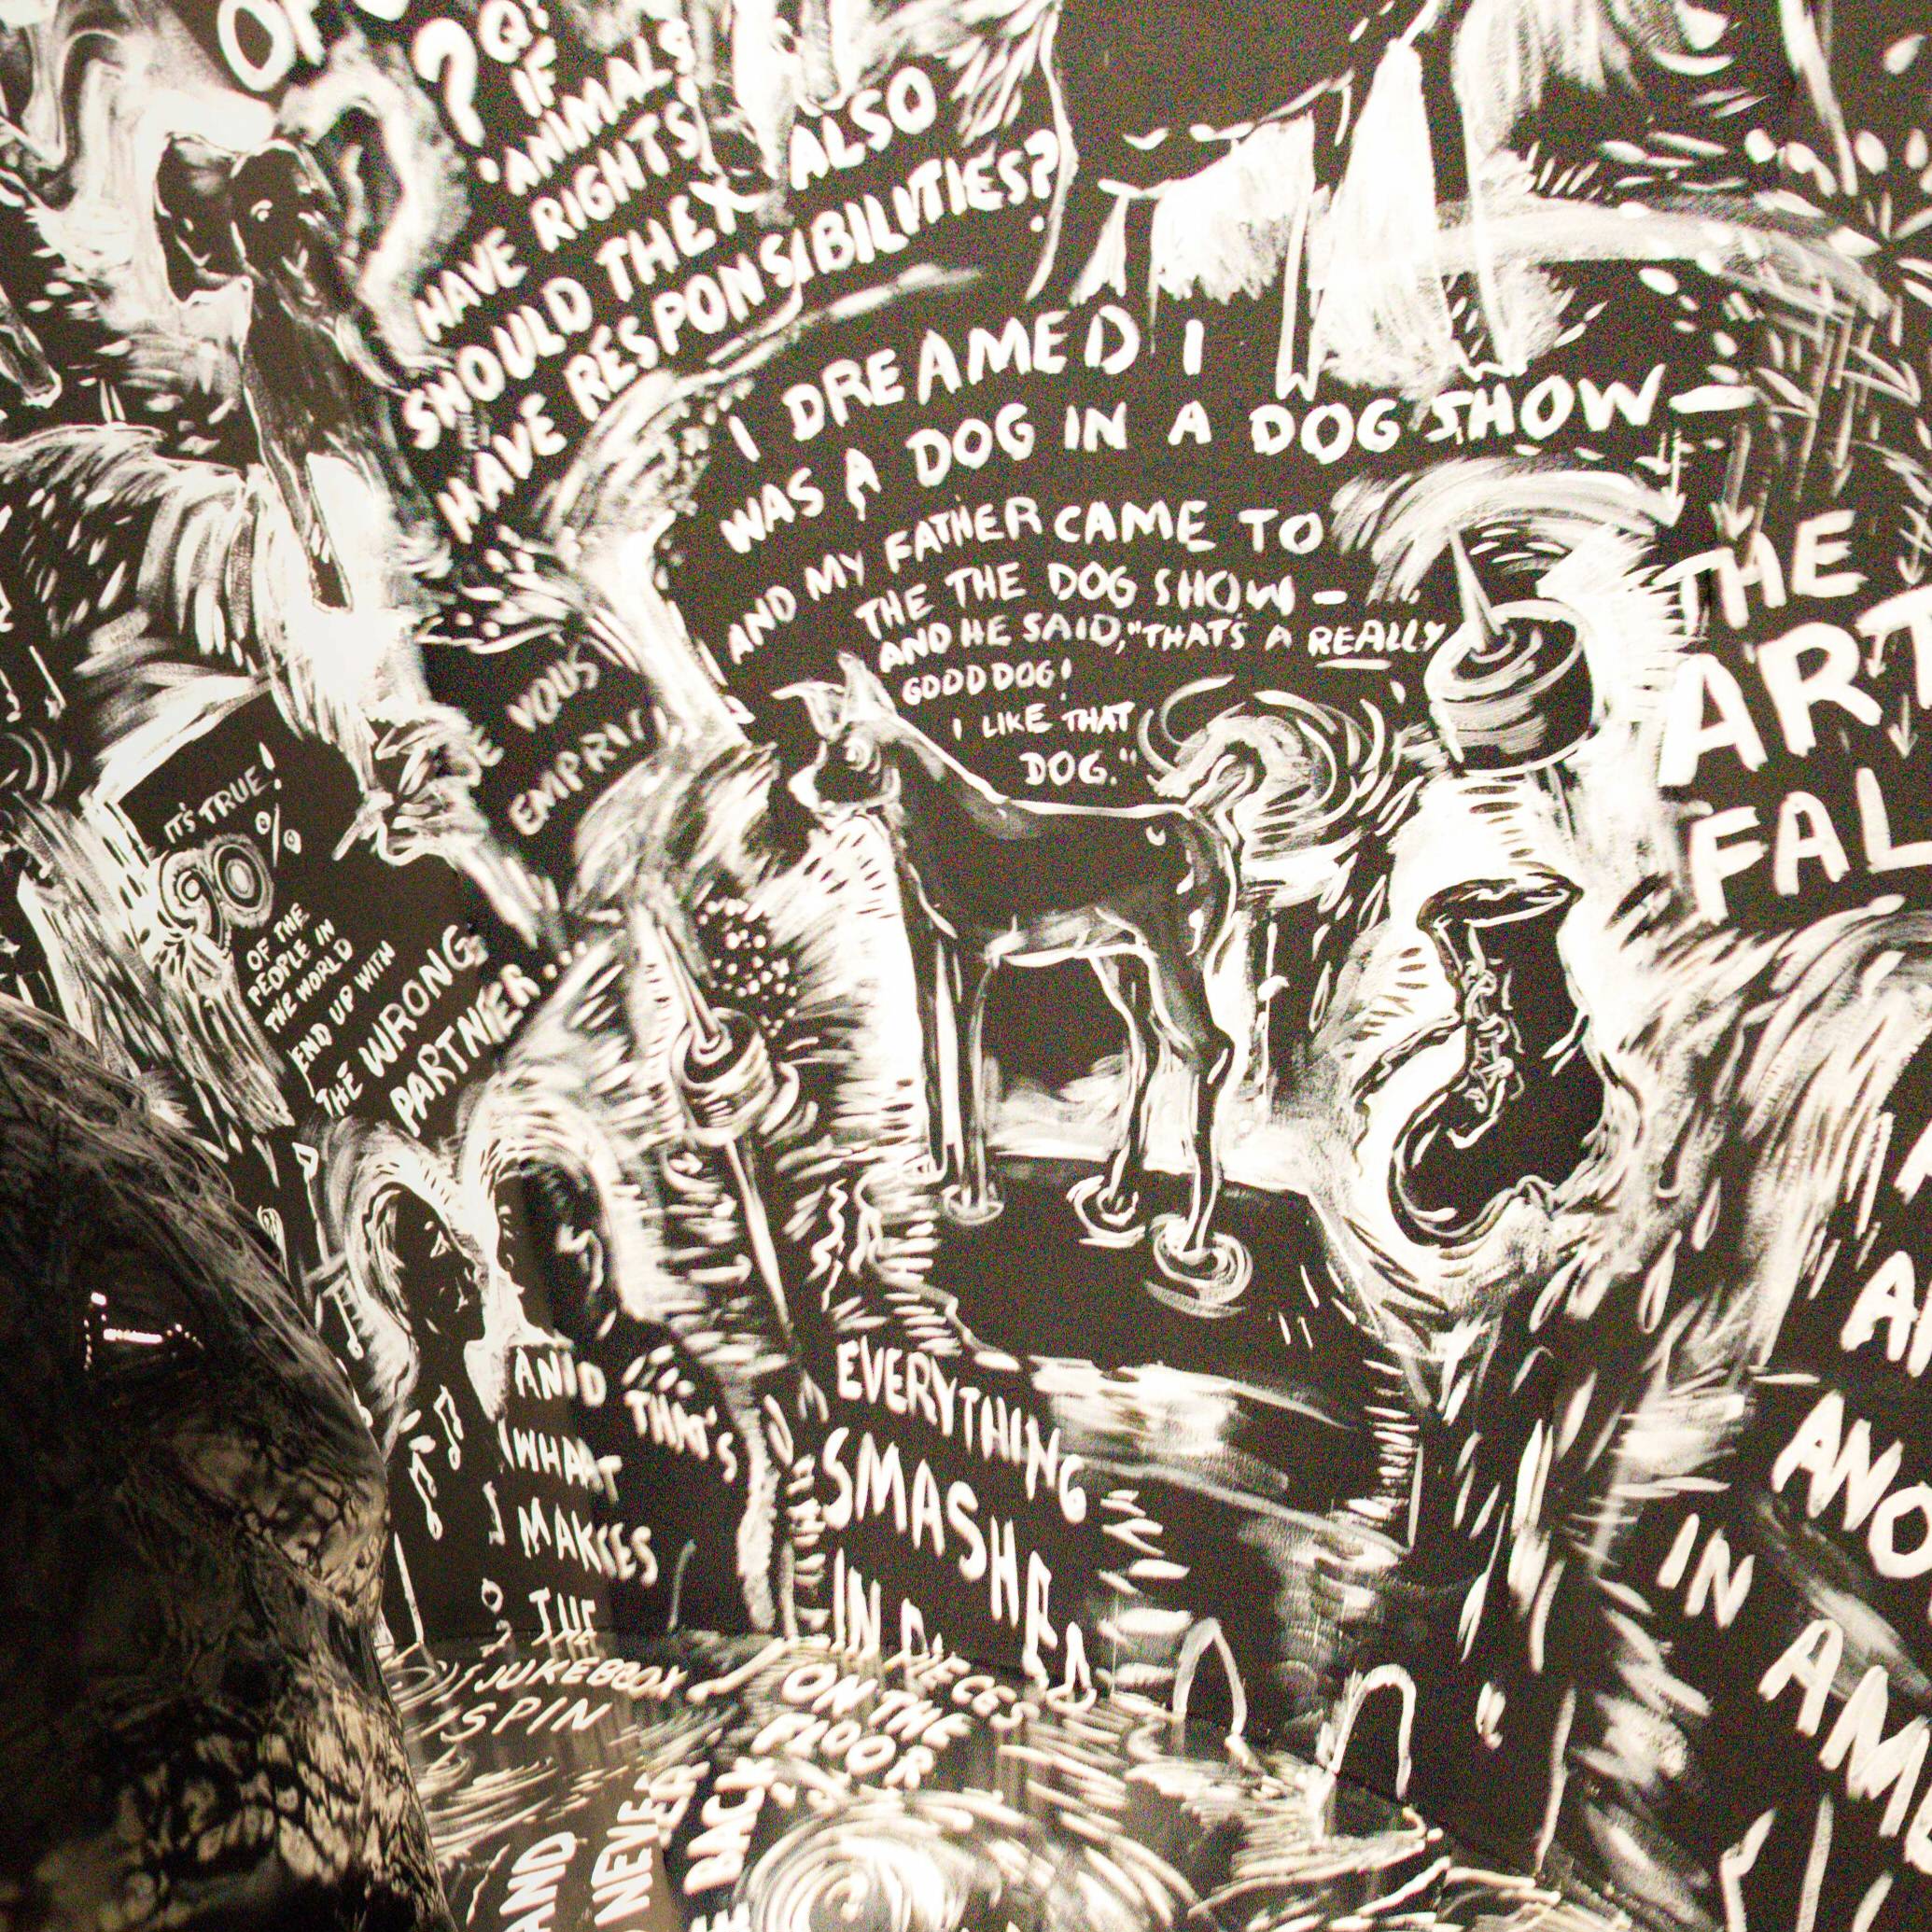 OF
?
Q: IF
ANIMALS
HAVE RIGHTS
SHOULD THEY ALSO
HAVE RESPONSIBILITIES?
I DREAMED I
WAS A DOG IN A DOG SHOW—
AND MY FATHER CAME TO
THE THE DOG SHOW —
AND HE SAID, "THAT'S A REALLY
GOOD DOG!
I LIKE THAT
DOG."
VOUS
IT'S TRUE!
90%
OF THE
PEOPLE IN
THE WORLD
END UP WITH
THE WRONG
PARTNER...
THE
ART
FAL
AND THAT'S
WHAT
MAKES
THE
JUKEBOX
SPIN
EVERYTHING
SMASHED
IN PIECES
ON THE
FLOOR
AND
NEVER
BACK
ANO
IN
AM